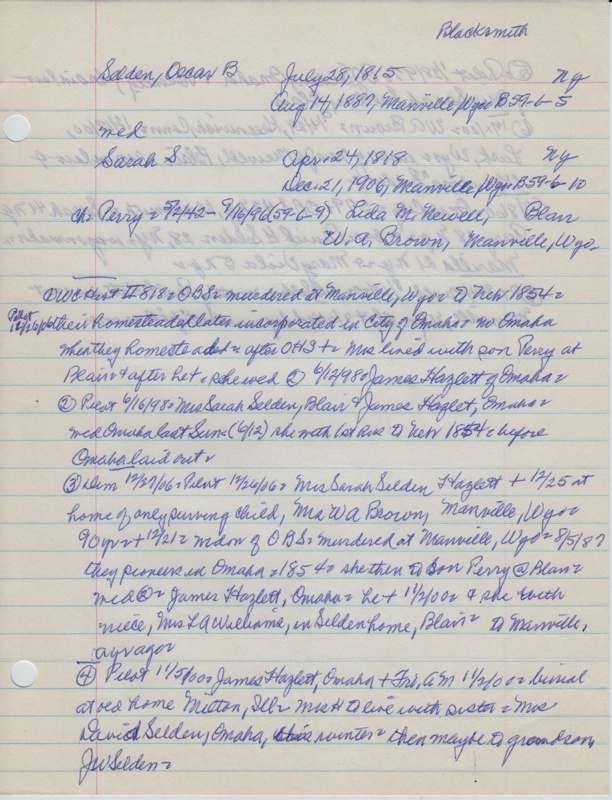 Blacksmith
Selden, Oscar B July 28, 1815 NY
Aug 14, 1887, Manville, Wyo B59-6-5
wed
Sarah S Apr 24, 1818 NY
Dec 21, 1906, Manville, Wyo B59-6-10
Ch: Perry = 5/2/42 - 9/16/96 (59-6-9) Lida M. Newell, Blair
W.A. Brown, Manville, Wyo.
① WC Hist II 818 = OBS = murdered at Manville, Wyo = to Nebr 1854 =
Pilot 12/26/06 their homesteaded later incorporated in City of Omaha = no Omaha
when they homesteaded = after OHS + = Mrs lived with son Perry at
Blair = & after he + = she wed ② 6/12/98 = James Hazlett of Omaha =
② Pilot 6/16/98 = Mrs Sarah Selden, Blair & James Hazlet, Omaha =
wed Omaha last Sun = (6/12) she with 1st hus to Nebr 1854 = before
Omaha laid out =
③ Dem 12/27/06 = Pilot 12/26/06 = Mrs Sarah Selden Hazlett + 12/25 at
home of only surving child, Mrs WA Brown, Manville, Wyo =
90 yr = + 12/21 = widow of OBS = murdered at Manville, Wyo = 8/5/87
they pioneers in Omaha = 1854 = she then to son Perry @ Blair =
wed ② = James Hazlett, Omaha = he + 11/2/00 = & she with
niece, Mrs LA Williams, in Selden home, Blair = to Manville,
a yr ago =
④ Pilot 11/5/00 = James Hazlett, Omaha + Fri, AM 11/2/00 = burial
at old home Milton, Ill = Mrs H to live with sister = Mrs
David Selden, Omaha, this winter = then maybe to grandson,
JW Selden =